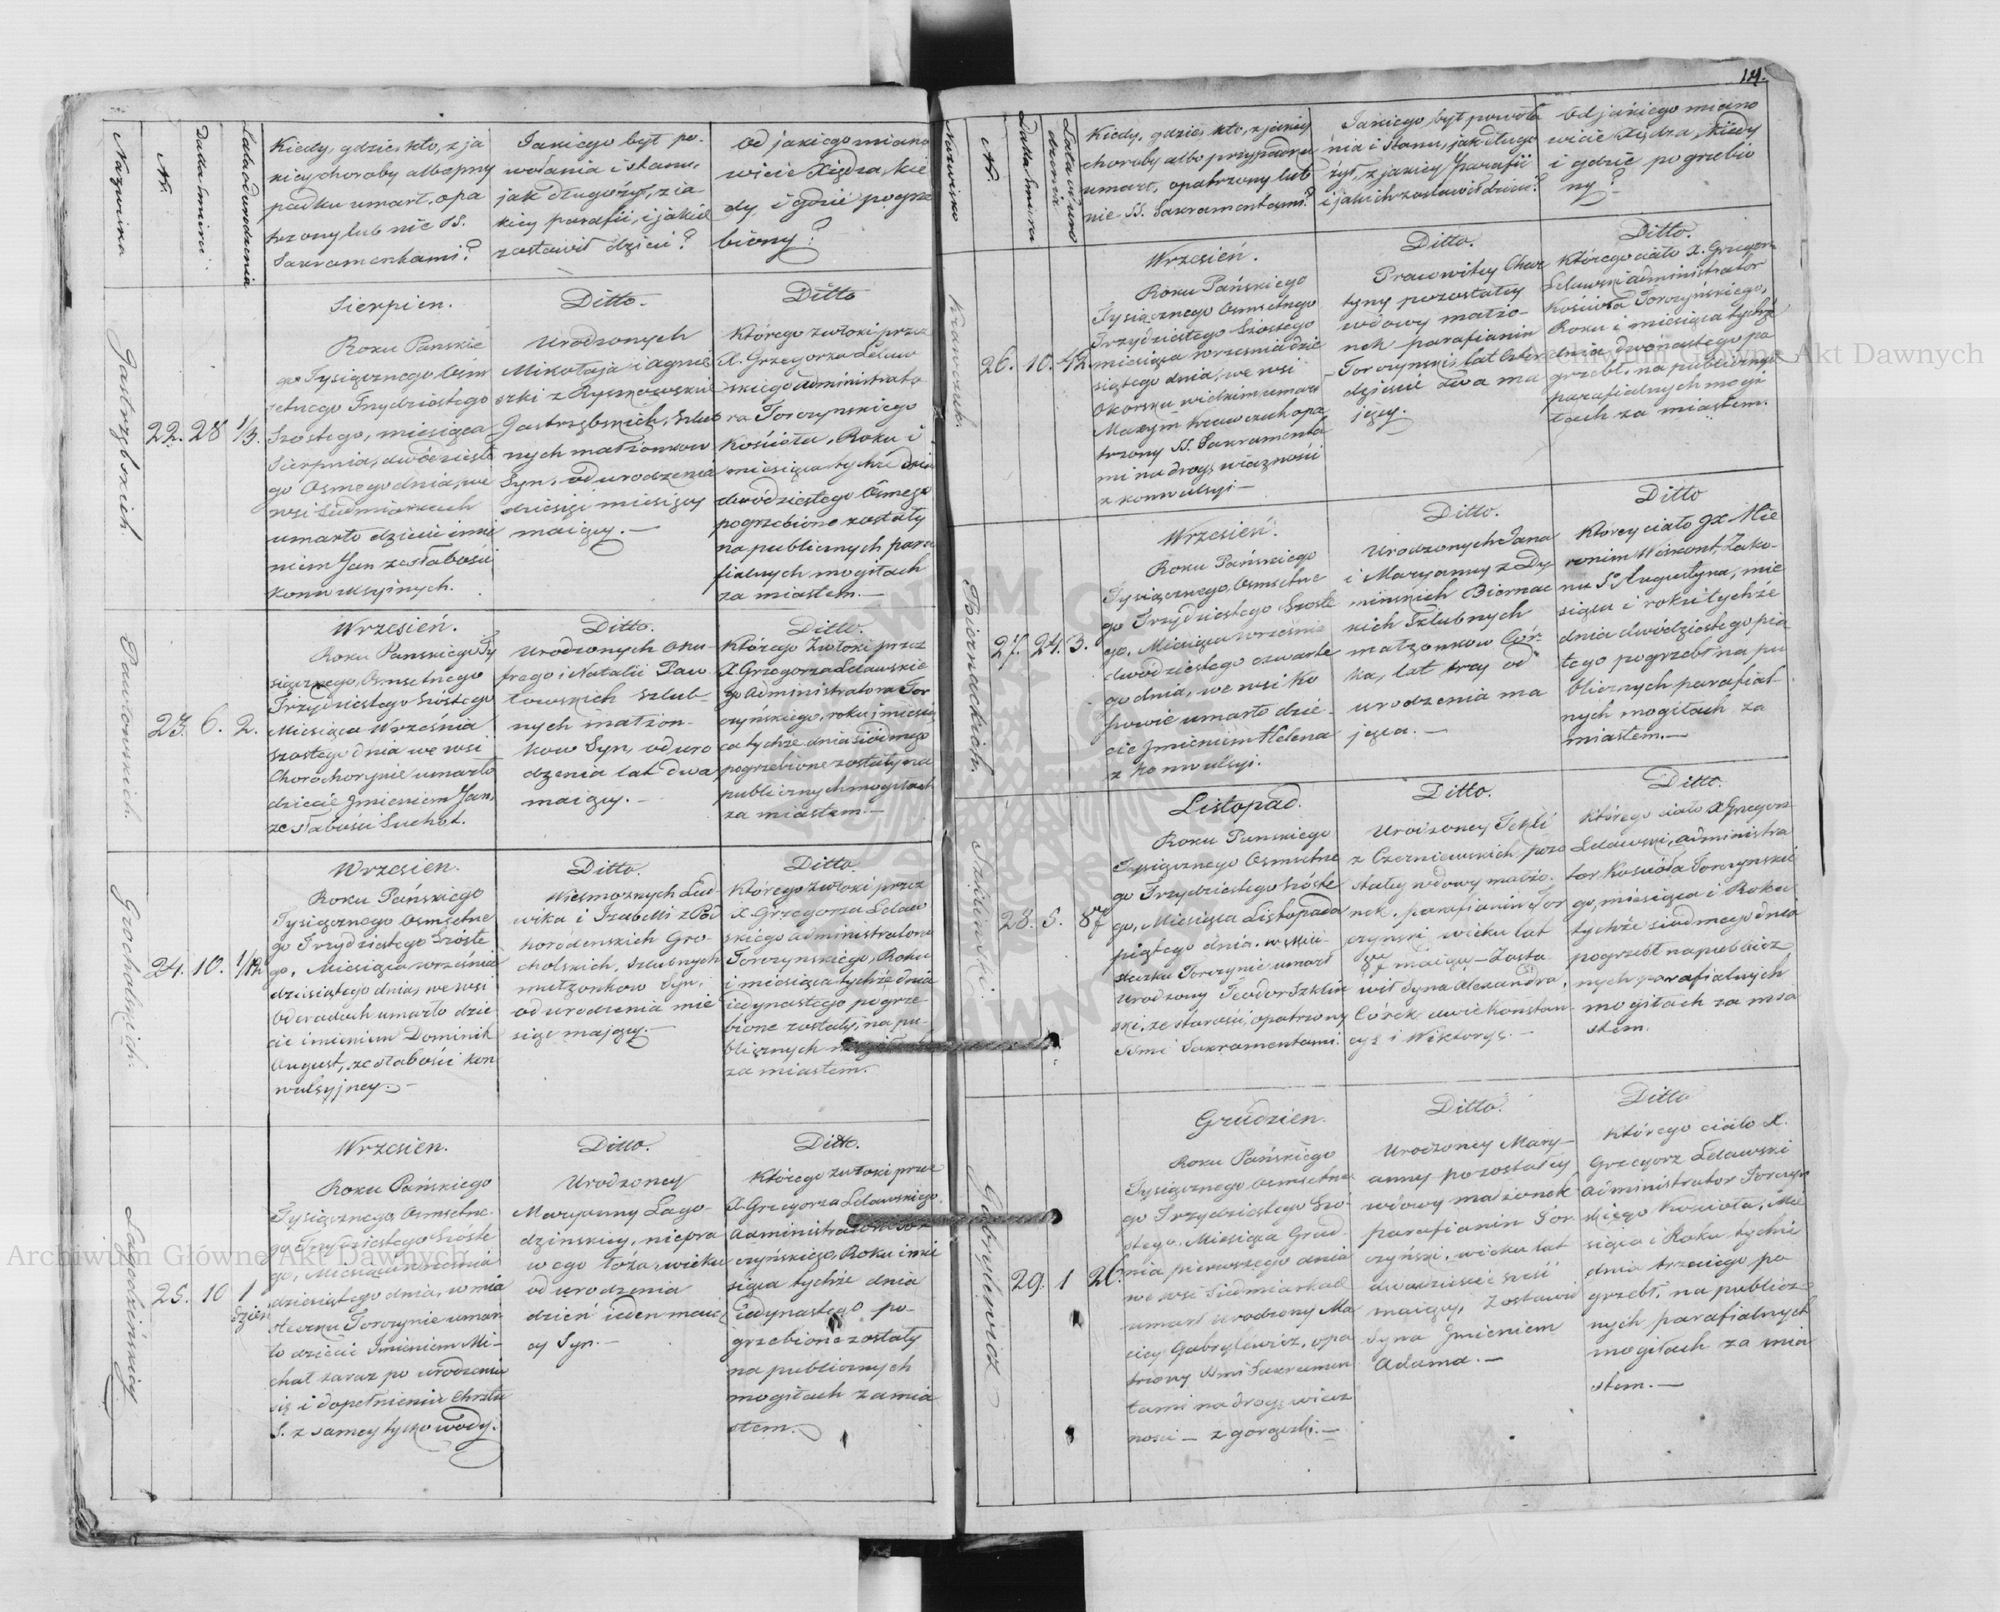 Nazwiska
Nr.
Data śmierci
Lata od urodzenia
Kiedy, gdzie, kto, z ja
kiey choroby albo przy
padku umarł, opa
trzony lub nie SS.
Sakramentami?
Jakiego był po-
wołania i stanu,
jak długo żył, z ja
kiey parafii, i jakie
zostawił dzieci?
Od jakiego miano
wicie Xiędza, kie
dy, i gdzie pogrze
biony?
Jastrzębskich.
22.
28
1/3.
Sierpien.
Roku Panskie
go Tysiącznego Ośm
setnego Trzydziestego
Szostego, miesiąca
Sierpnia, dwódzieste
go Osmego dnia, we
wsi Sudmiarkach
umarło dziecie imie
niem Jan ze słabości
konwulsyinych.
Ditto.
Urodzonych
Mikołaja i Agnie
szki z Ryszkowskich
Jastrzębskich, szlub
nych małżonkow
Syn, od urodzenia
dziesięć miesięcy
maiący.—
Ditto
Którego zwłoki przez
X. Grzegorza Lelaw
skiego administrato
ra Torczynskiego
Kościoła, Roku i
miesiąca tychże dnia
dwódziestego Osmego
pogrzebione zostały
na publicznych para
fialnych mogiłach
za miastem.—
Pawłowskich.
23.
6.
2.
Wrzesień.
Roku Panskiego Ty
siącznego, Osmsetnego
Trzydziestego Szóstego
Miesiąca Września
szostego dnia we wsi
Chorochorynie umarło
dziecie Jmieniem Jan,
ze słabości Suchot.
Ditto.
Urodzonych Onu-
frego i Natalii Paw
łowskich szlub-
nych małżon-
kow Syn, od uro
dzenia lat dwa
maiący.—
Ditto.
Którego Zwłoki przez
X Grzegorza Lelawskie
go Administratora Tor
czyńskiego, roku i miesią
ca tychże dnia siódmego
pogrzebione zostały na
publicznych mogiłach
za miastem.—
Grocholskich.
24.
10.
1/12
Wrzesien.
Roku Pańskiego
Tysiącznego Osmsetne
go Trzydziestego Szóste
go, Miesiąca września
dziesiątego dnia, we wsi
Oderadach umarło dzie
cie imieniem Dominik
August, ze słabości kon
wulsyjney.—
Ditto.
Wielmożnych Lud-
wika i Izabelli z Pod
horodenskich Gro-
cholskich, szlubnych
małżonkow Syn,
od urodzenia mie
siąc mający.—
Ditto.
Którego zwłoki przez
X. Grzegorza Lelaw
skiego administratora
Torczynskiego, Roku
i miesiąca tychże dnia
jedynastego pogrze-
bione zostały, na pu-
blicznych mogiłach
za miastem.
Łagodzińskiey
25.
10
1
dzień
Wrzesien.
Roku Pańskiego
Tysiącznego Osmsetne-
go Trzydziestego Szóste
go, Miesiąca września
dziesiątego dnia, w mia
steczku Torczynie umar
ło dziecie Imieniem Mi-
chał zaraz po urodzeniu
się i dopełnieniu Chrztu
S. z samey tylko wody.
Ditto.
Urodzoney
Maryanny Łago-
dzinskiey, niepra
wego łoża, wieku
od urodzenia
dzień ieden maią
cy Syn.—
Ditto.
Którego zwłoki przez
X. Grzegorza Lelawskiego
Administratora Tor
czyńskiego, Roku i mie
siąca tychże dnia
iedynastego po-
grzebione zostały
na publicznych
mogiłach za mia
stem.
114.
Nazwisko
Nr.
Data śmierci
Lata od uro
dzenia
Kiedy, gdzie, kto, z jakiey
choroby albo przypadku
umarł, opatrzony lub
nie SS. Sakramentami?
Jakiego był powoła
nia i stanu, jak długo
żył, z jakiey parafii
i jakich zostawił dzieci?
Od jakiego miano
wicie Xiędza, kiedy
i gdzie pogrzebio
ny?
Krawczuk.
26.
10.
42.
Wrzesień.
Roku Pańskiego
Tysiącznego Osmsetnego
Trzydziestego Szóstego
miesiąca września dzie
siątego dnia, we wsi
Okorsku wielkim umarł
Maxym Krawczuk opa
trzony SS. Sakramenta
mi na drogę wieczności
z konwulsyi—
Ditto.
Pracowitey Char
tyny pozostałey
wdowy małżo-
nek parafianin
Torczynski, lat czter
dzieście dwa ma
jący.
Ditto.
Którego ciało X. Grzegorz
Lelawski administrator
Kościoła Torczyńskiego,
Roku i miesiąca tychże
dnia dwónastego po
grzebł, na publicznych
parafialnych mogi
łach za miastem.
Biernackich.
27.
24.
3.
Wrzesień.
Roku Pańskiego
Tysiącznego, Osmsetne
go Trzydziestego Szoste
go, Miesiąca września
dwodziestego czwarte
go dnia, we wsi Ko
powie umarło dzie-
cie Jmieniem Helena
z konwulsyi.
Ditto.
Urodzonych Jana
i Maryanny z Dy
minskich Biernac
kich szlubnych
małżonkow Cór-
ka, lat trzy od
urodzenia ma
jąca.—
Ditto
Którey ciało JX. Hie
ronim Wiskont, Zako-
nu S. Augustyna, mie
siąca i roku tychże
dnia dwódziestego pią
tego pogrzebł na pu
blicznych parafial-
nych mogiłach za
miastem.—
Szklinski.
28.
5.
87
Listopad.
Roku Panskiego
Tysiącznego Osmsetne
go Trzydziestego Szóste
go, Miesiąca Listopada
piątego dnia, w Mia-
steczku Torczynie umarł
Urodzony Teodor Szklin
ski, ze starości, opatrzony
SSmi Sakramentami.
Ditto.
Urodzoney Tekli
z Czerniewskich pozo
stałey wdowy małżo-
nek, parafianin Tor
czynski wieku lat
87 maiący—Zosta
wił Syna Alexandra,
Córek dwie Konstan-
cyę i Wiktoryę.—
Ditto.
Którego ciało X Grzegorz
Lelawski, administra
tor Kościoła Torczynskie
go, miesiąca i Roku
tychże siudmego dnia
pogrzebł na publicz
nych parafialnych
mogiłach za mia
stem.
Gabrylewicz
29.
1
26.
Grudzien.
Roku Pańskiego
Tysiącznego Osmsetne
go Trzydziestego Szó-
stego, Miesiąca Grud-
nia pierwszego dnia
we wsi Sudmiarkach
umarł urodzony Ma
ciey Gabrylewicz, opa
trzony SSmi Sakramen
tami na drogę wiecz
nosci— z gorączki.—
Ditto.
Urodzoney Mary-
anny pozostałey
wdowy małżonek
parafianin Tor-
czyński, wieku lat
dwadzieście sześć
maiący, Zostawił
Syna Jmieniem
Adama.—
Ditto
Którego ciało X.
Grzegorz Lelawski
Administrator Torczyn
skiego Kościoła, Mie
siąca i Roku tychże
dnia trzeciego po
grzebł, na publicz-
nych parafialnych
mogiłach za mia
stem.—
Archiwum Główne Akt Dawnych
Archiwum Główne Akt Dawnych